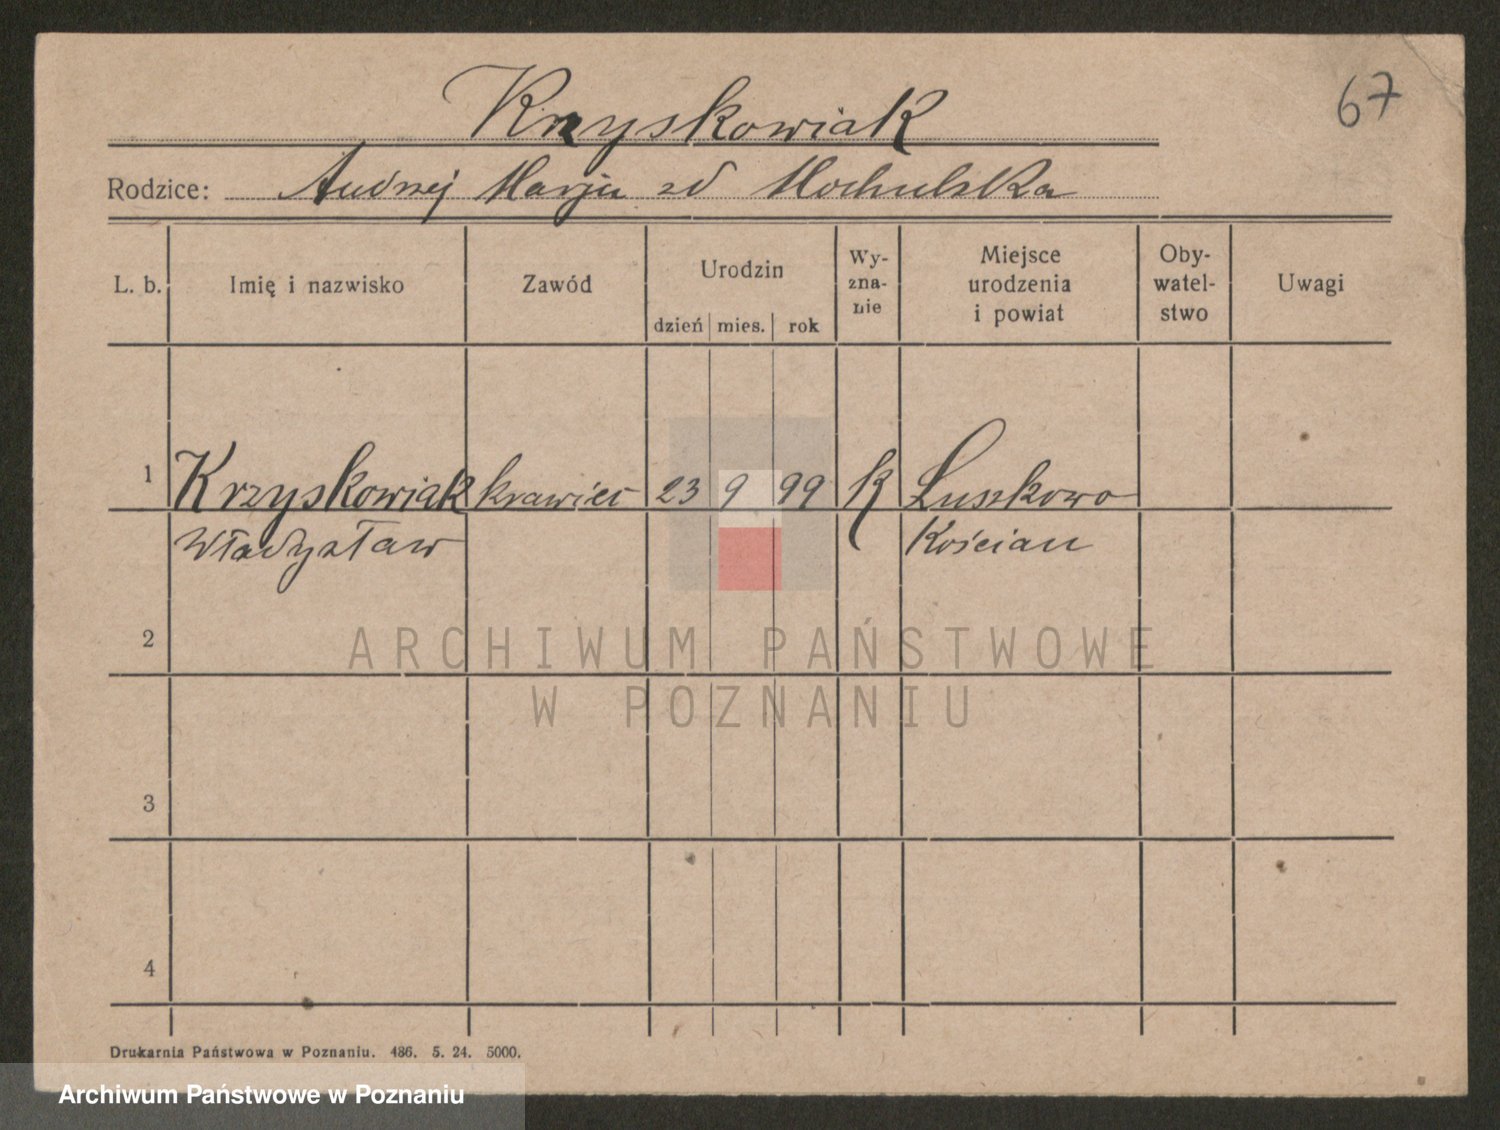 67
Krzyskowiak
Rodzice: Andrzej Marja zd Mochulska
L. b. Imię i nazwisko Zawód Urodzin dzień mies. rok Wy-zna-nie Miejsce urodzenia i powiat Oby-watel-stwo Uwagi
1 Krzyskowiak krawiec 23 9 99 K Łuszkowo
Władysław Kościan
2
ARCHIWUM PAŃSTWOWE
W POZNANIU
3
4
Drukarnia Państwowa w Poznaniu. 486. 5. 24. 5000.
Archiwum Państwowe w Poznaniu